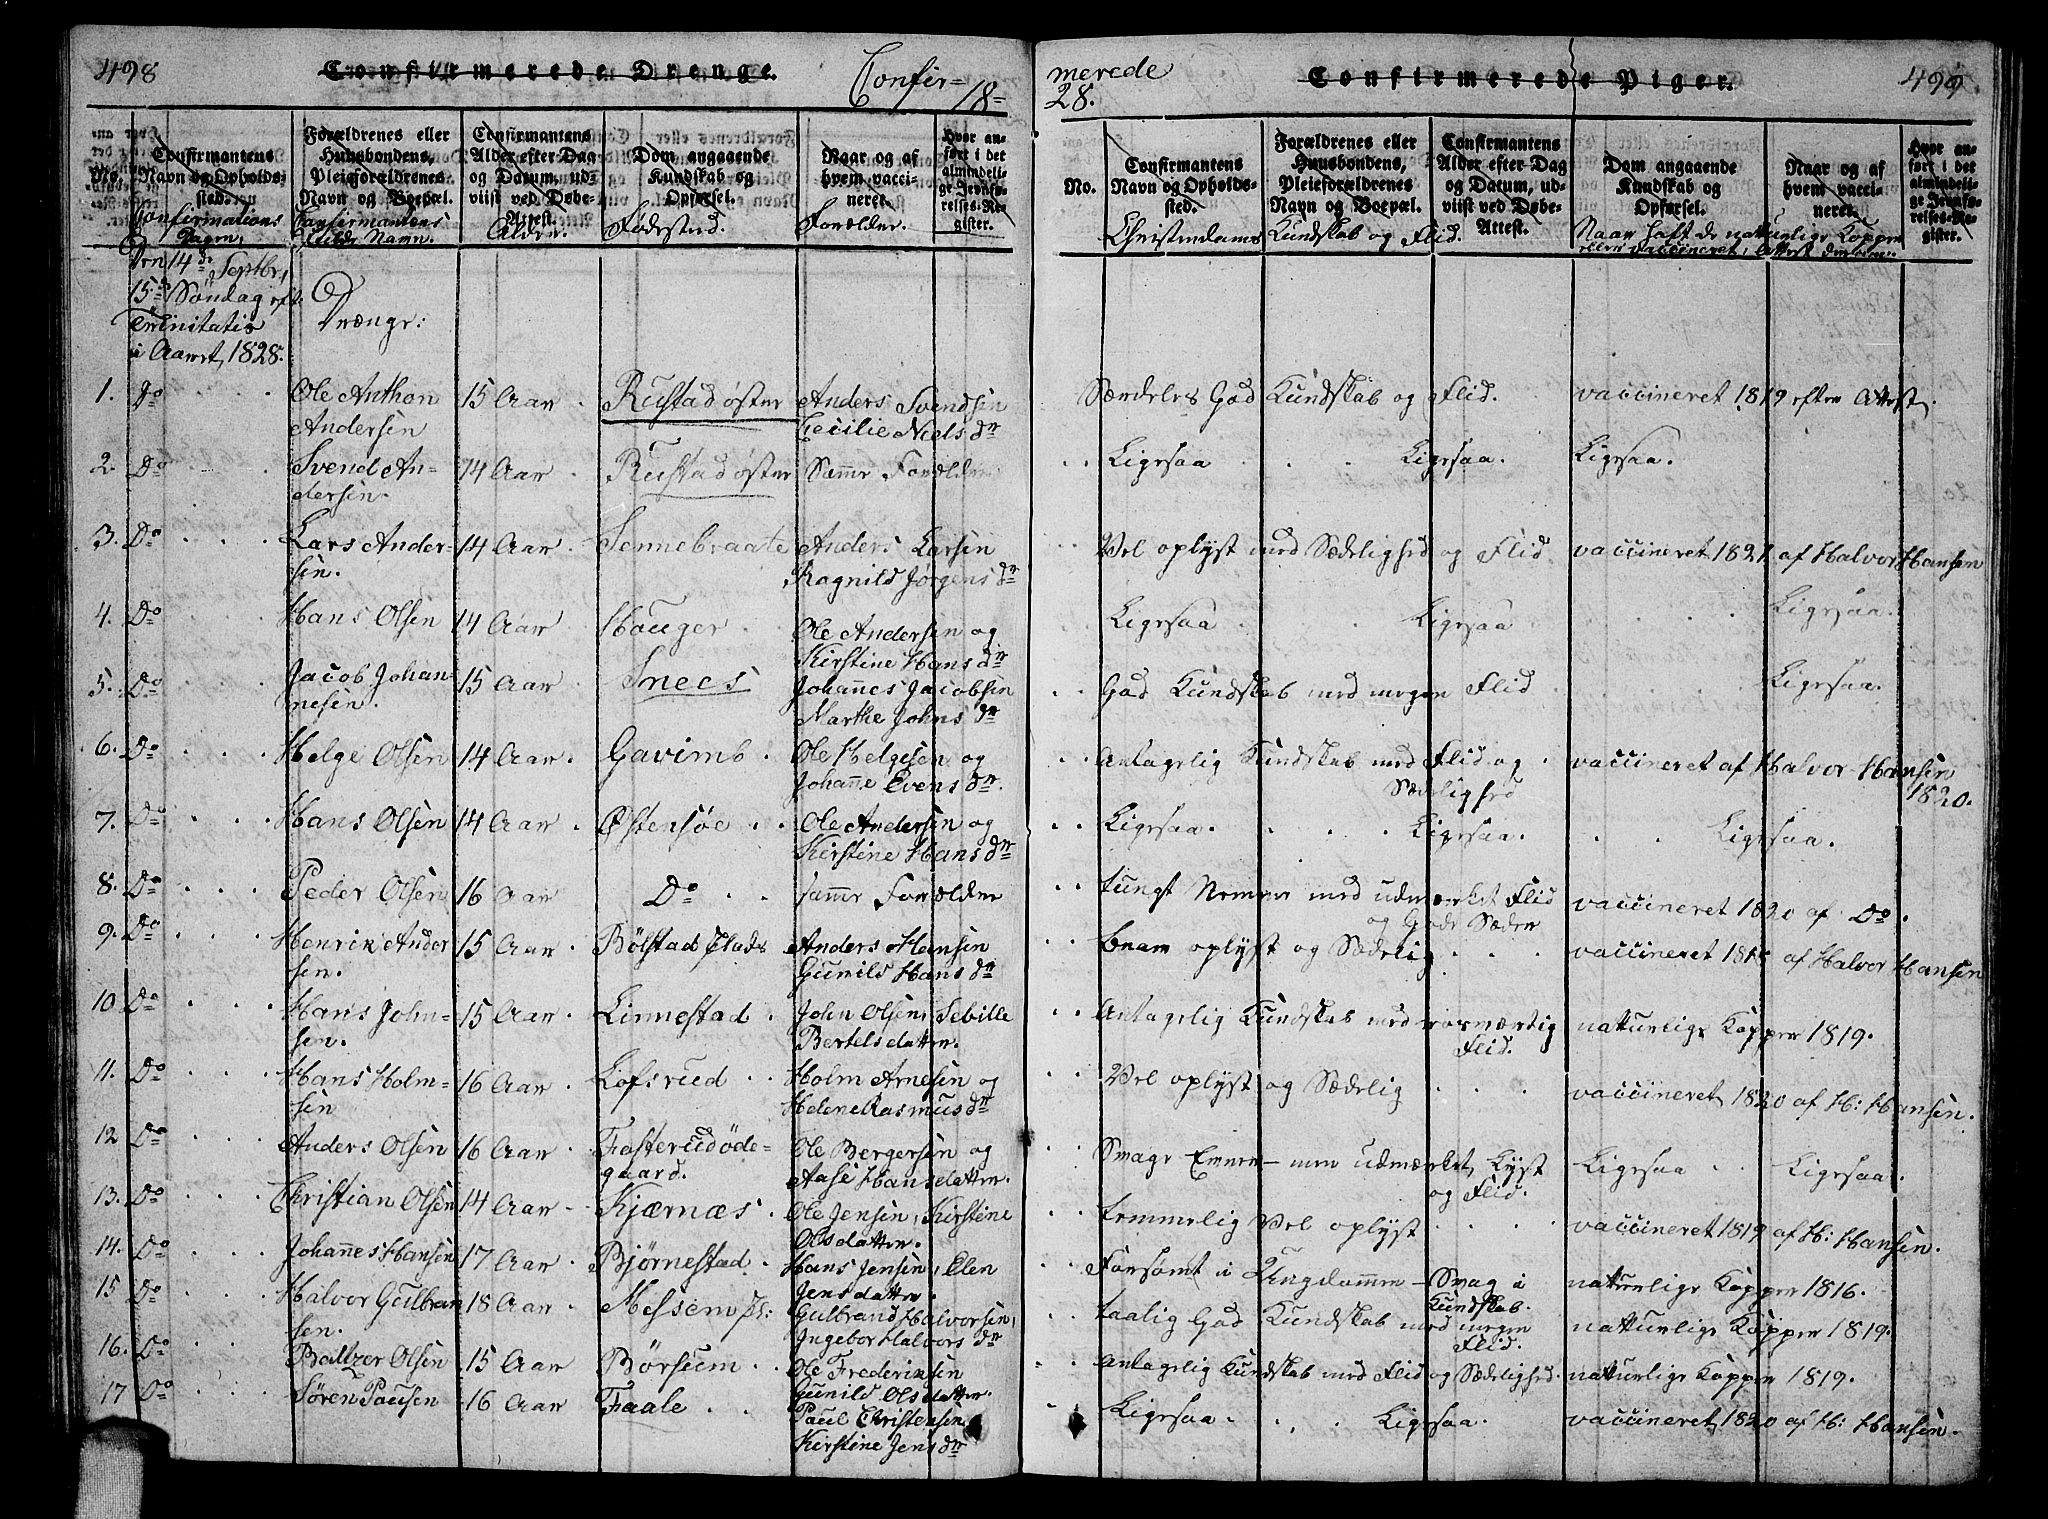 498 Confirmerede Drenge. Confir- 18=
merede 28. Confirmerede Piger. 499
No.
Confirmantens Navn og Opholdssted.
Forældrenes eller Huusbondens, Pleieforældrenes Navn og Boepæl.
Confirmantens Alder efter Dag og Datum, udviist ved Døbe-Attest.
Dom angaaende Kundskab og Opførsel.
Naar og af hvem vaccineret.
Hvor anført i det almindelige Jevnførelses-Register.
No.
Confirmantens Navn og Opholdssted.
Forældrenes eller Huusbondens, Pleieforældrenes Navn og Boepæl.
Confirmantens Alder efter Dag og Datum, udviist ved Døbe-Attest.
Dom angaaende Kundskab og Opførsel.
Naar og af hvem vaccineret.
Hvor anført i det almindelige Jevnførelses-Register.
Confirmations Dagen,
Confirmantens fulde Navn.
Alder.
Fødested.
Forældre.
Christendoms Kundskab og Flid.
Naar haft de naturlige Kopper eller vaccineret, Attest derom.
Den 14de Septbr,
15de Søndag eft.
Trinitatis
i Aaret 1828.
Drænge:
1. Do Ole Anthon Andersen 15 Aar Rustad øster Anders Svendsen Cecilie Nielsdr Særdeles God Kundskab og Flid. vaccineret 1819 efter Attest.
2. Do Svend Andersen. 14 Aar Rustad øster Samme Forældre Ligesaa Ligesaa. Ligesaa.
3. Do Lars Andersen. 14 Aar Sennebraate Anders Larsen Ragnild Jørgensdr Vel oplyst med Sædelighed og Flid. vaccineret 1821 af Halvor Hansen
4. Do Hans Olsen 14 Aar Hauger Ole Andersen og Kirstine Hansdr Ligesaa Ligesaa Ligesaa.
5. Do Jacob Johannesen. 15 Aar Snees Johannes Jacobsen Marthe Johnsdr God Kundskab med megen Flid Ligesaa.
6. Do Helge Olsen 14 Aar Gavimb Ole Helgesen og Johanne Evensdr. Antagelig Kundskab med Flid og Sædelighed vaccineret af Halvor Hansen 1820.
7. Do Hans Olsen 14 Aar Østensøe Ole Andersen og Kirstine Hansdr Ligesaa. Ligesaa. Ligesaa.
8. Do Peder Olsen 16 Aar Do samme Forældre tungt Nemme med udmærket Flid og Gode Sæder vaccineret 1820 af Do.
9. Do Henrik Andersen. 15 Aar Bølstad Anders Hansen Gunild Hansdr brav oplyst og Sædelig vaccineret af Halvor Hansen
10 Do Hans Johnsen. 15 Aar Linnestad John Olsen, Sebille Bertelsdatter. Antagelig Kundskab med Flid. naturlige Kopper 1819.
11. Do Hans Holmsen 16 Aar Lofsrud Holm Arnesen og Helene Rasmusdr Vel oplyst og Sædelig vaccineret 1820 af H: Hansen.
12 Do Anders Olsen 16 Aar Fosterudødegaard. Ole Bergersen og Aase Hansdatter. Svage Evner – men udmærket Lyst og Flid. Ligesaa Ligesaa.
13. Do Christian Olsen 14 Aar Kjærnæs Ole Jensen, Kirstine Olsdatter. temmelig Vel oplyst vaccineret 1819 af H: Hansen.
14. Do Johannes Hansen 17 Aar Bjørnestad Hans Jensen, Elen Jensdatter. Forsømt i Ungdommen – Svag i Kundskab. naturlige Kopper 1816.
15 Do Halvor Gulbransen. 18 Aar Messem Gulbrand Halvorsen, Ingebor Halvorsdr taalig God Kundskab med megen Flid. naturlige Kopper 1819.
16. Do Baltzer Olsen 15 Aar Børsum Ole Frederiksen Gunild Olsdatter. Antagelig Kundskab med Flid og Sædelighed. naturlige Kopper 1819.
17 Do Søren Paulsen 16 Aar Faale Paul Christensen, Kirstine Jensdr Ligesaa. Ligesaa. vaccineret 1820 af H: Hansen.